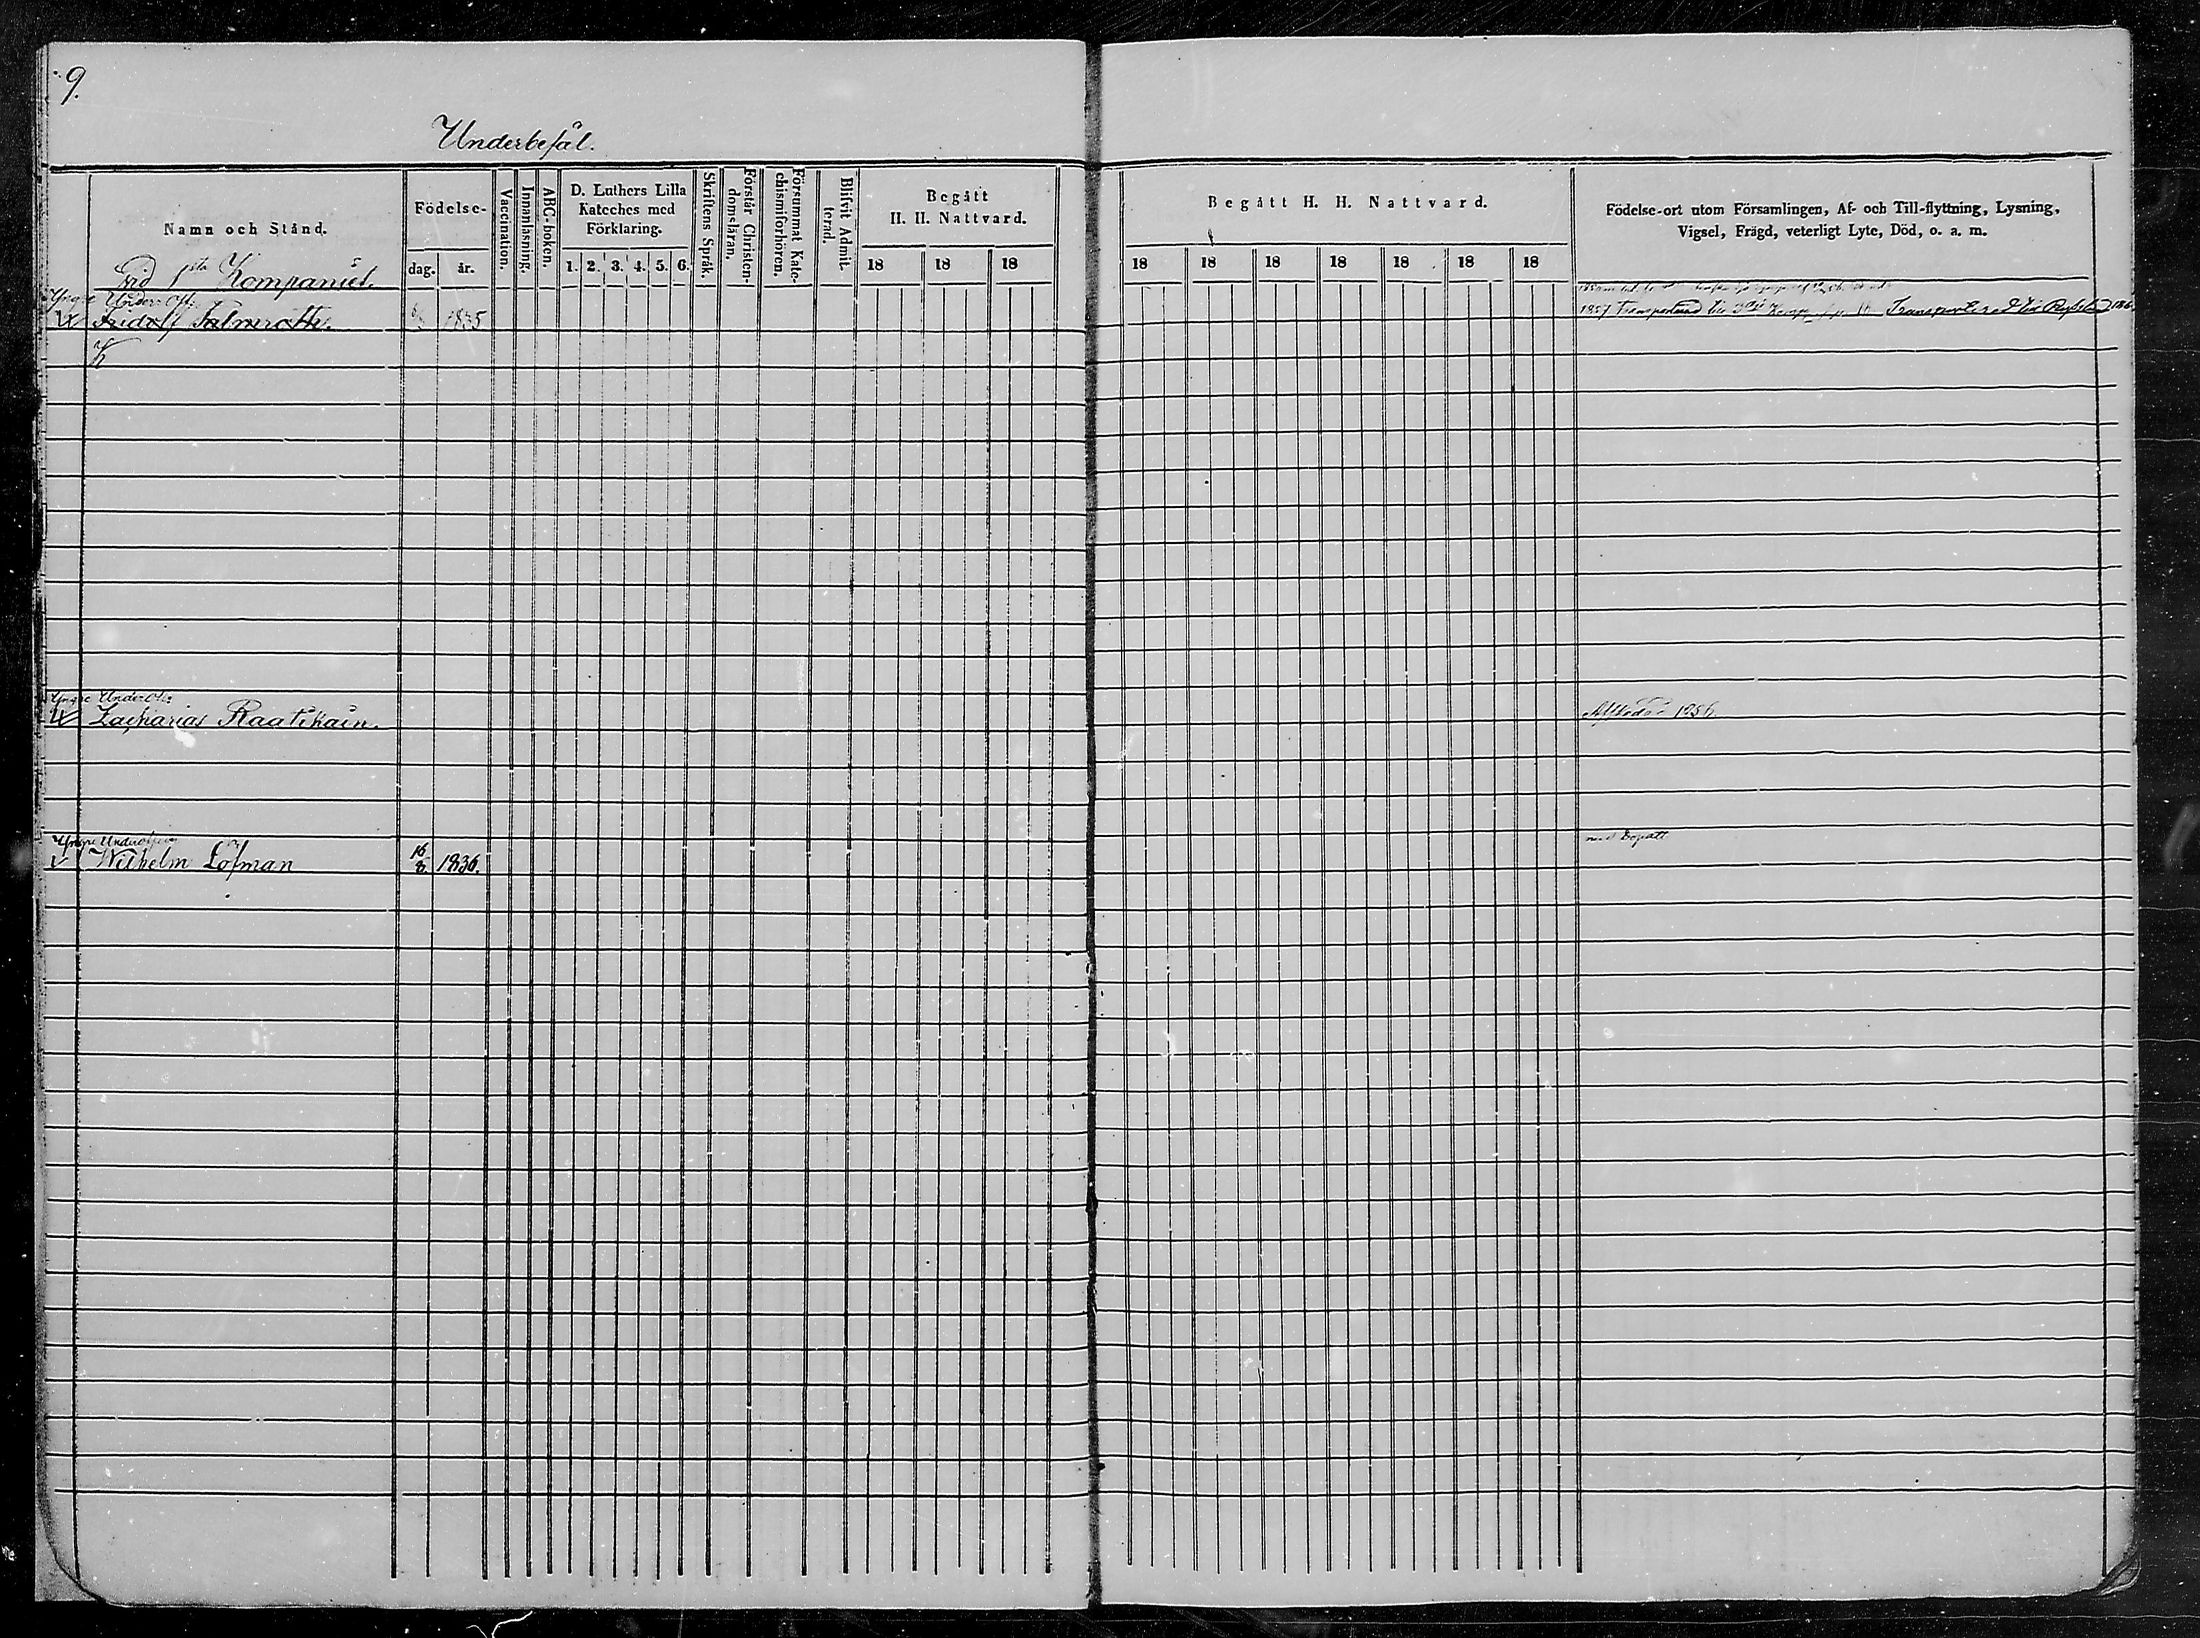 9.
Underbefäl.
Namn och Stånd.
Födelse-
dag.
år.
Vaccination.
Innanläsning.
ABC-boken.
D. Luthers Lilla
Kateches med
Förklaring.
1. 2. 3. 4. 5. 6.
Skriftens Språk.
Förstår Christen-
domsläran.
Försummat Kate-
chismiförhören.
Blifvit Admit-
terad.
Begått
H. H. Nattvard.
18 18 18
Begått H. H. Nattvard.
18 18 18 18 18 18 18
Födelse-ort utom Församlingen, Af- och Till-flyttning, Lysning,
Vigsel, Frägd, veterligt Lyte, Död, o. a. m.
vid 1sta Kompaniet.
Yngre Under Off.
Fridolf 1835
1857 Transporterad till Komp Transporterad till
Yngre Under Off.
Zacharias Raatikain. Afskedad 1856.
Yngre Underofficer
Wilhelm Löfman 16/8 1836.